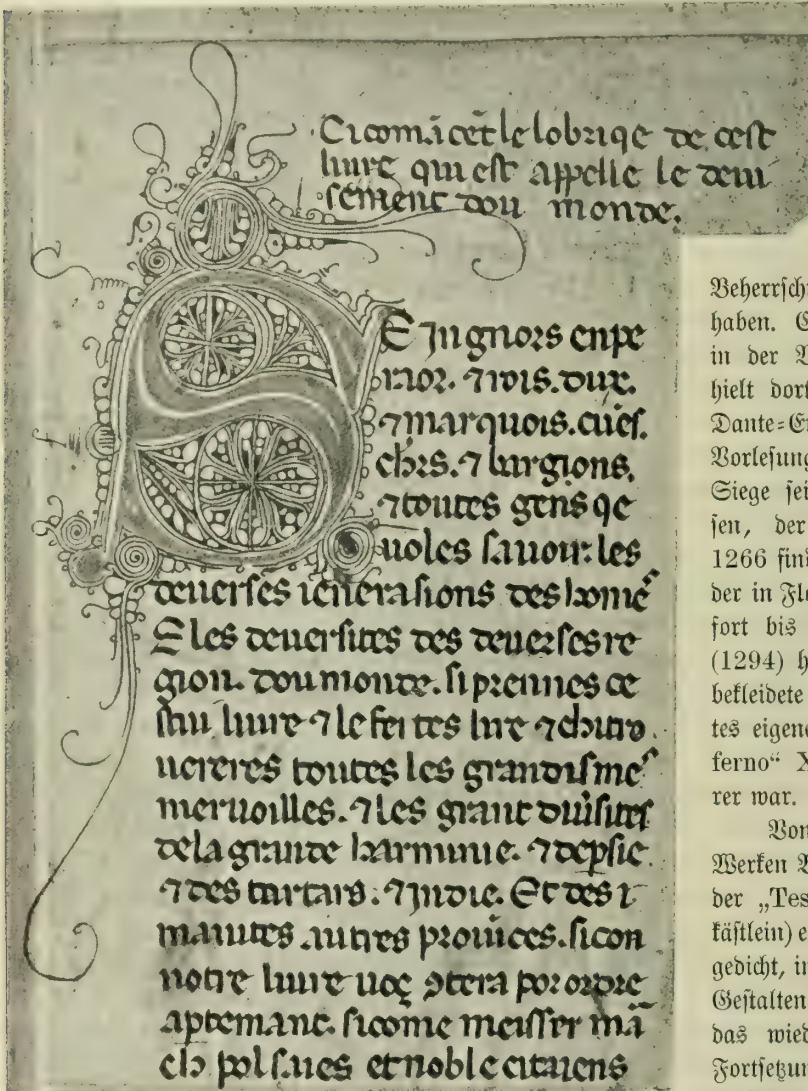 Ci comācet le lobriqe de cest
livre qui est appelle le deui
sement dou monde.
SEingnors enpe
raor. ⁊ rois. dux.
⁊ marquois. cuēs.
chrs. ⁊ burgions.
⁊ toutes gens qe
uoles sauoir les
deuerses ienerasions des home
E les deuersites des deuerses re
gion. dou monde. si prennes ce
stui liure ⁊ le feites lire ⁊ chouro
uereres toutes les grandisme
meruoilles. ⁊ les grant diuisites
de la grande harminie. ⁊ de psie.
⁊ des tartars. ⁊ indie. Et des
autres prouices. si con
notre liure uoç ɔtera por ordre
apertemant. si come meisser mā
ch pol saies et noble citaiens
Beherrsch
haben. E
in der
hielt dor
Dante=E
Vorlesung
Siege sei
sen, der
1266 fin
der in Fl
fort bis
(1294) h
bekleidete
tes eigen
ferno“ X
rer war.
Von
Werken
der „Tes
kästlein) e
gedicht, i
Gestalten
das wied
Fortsetzun